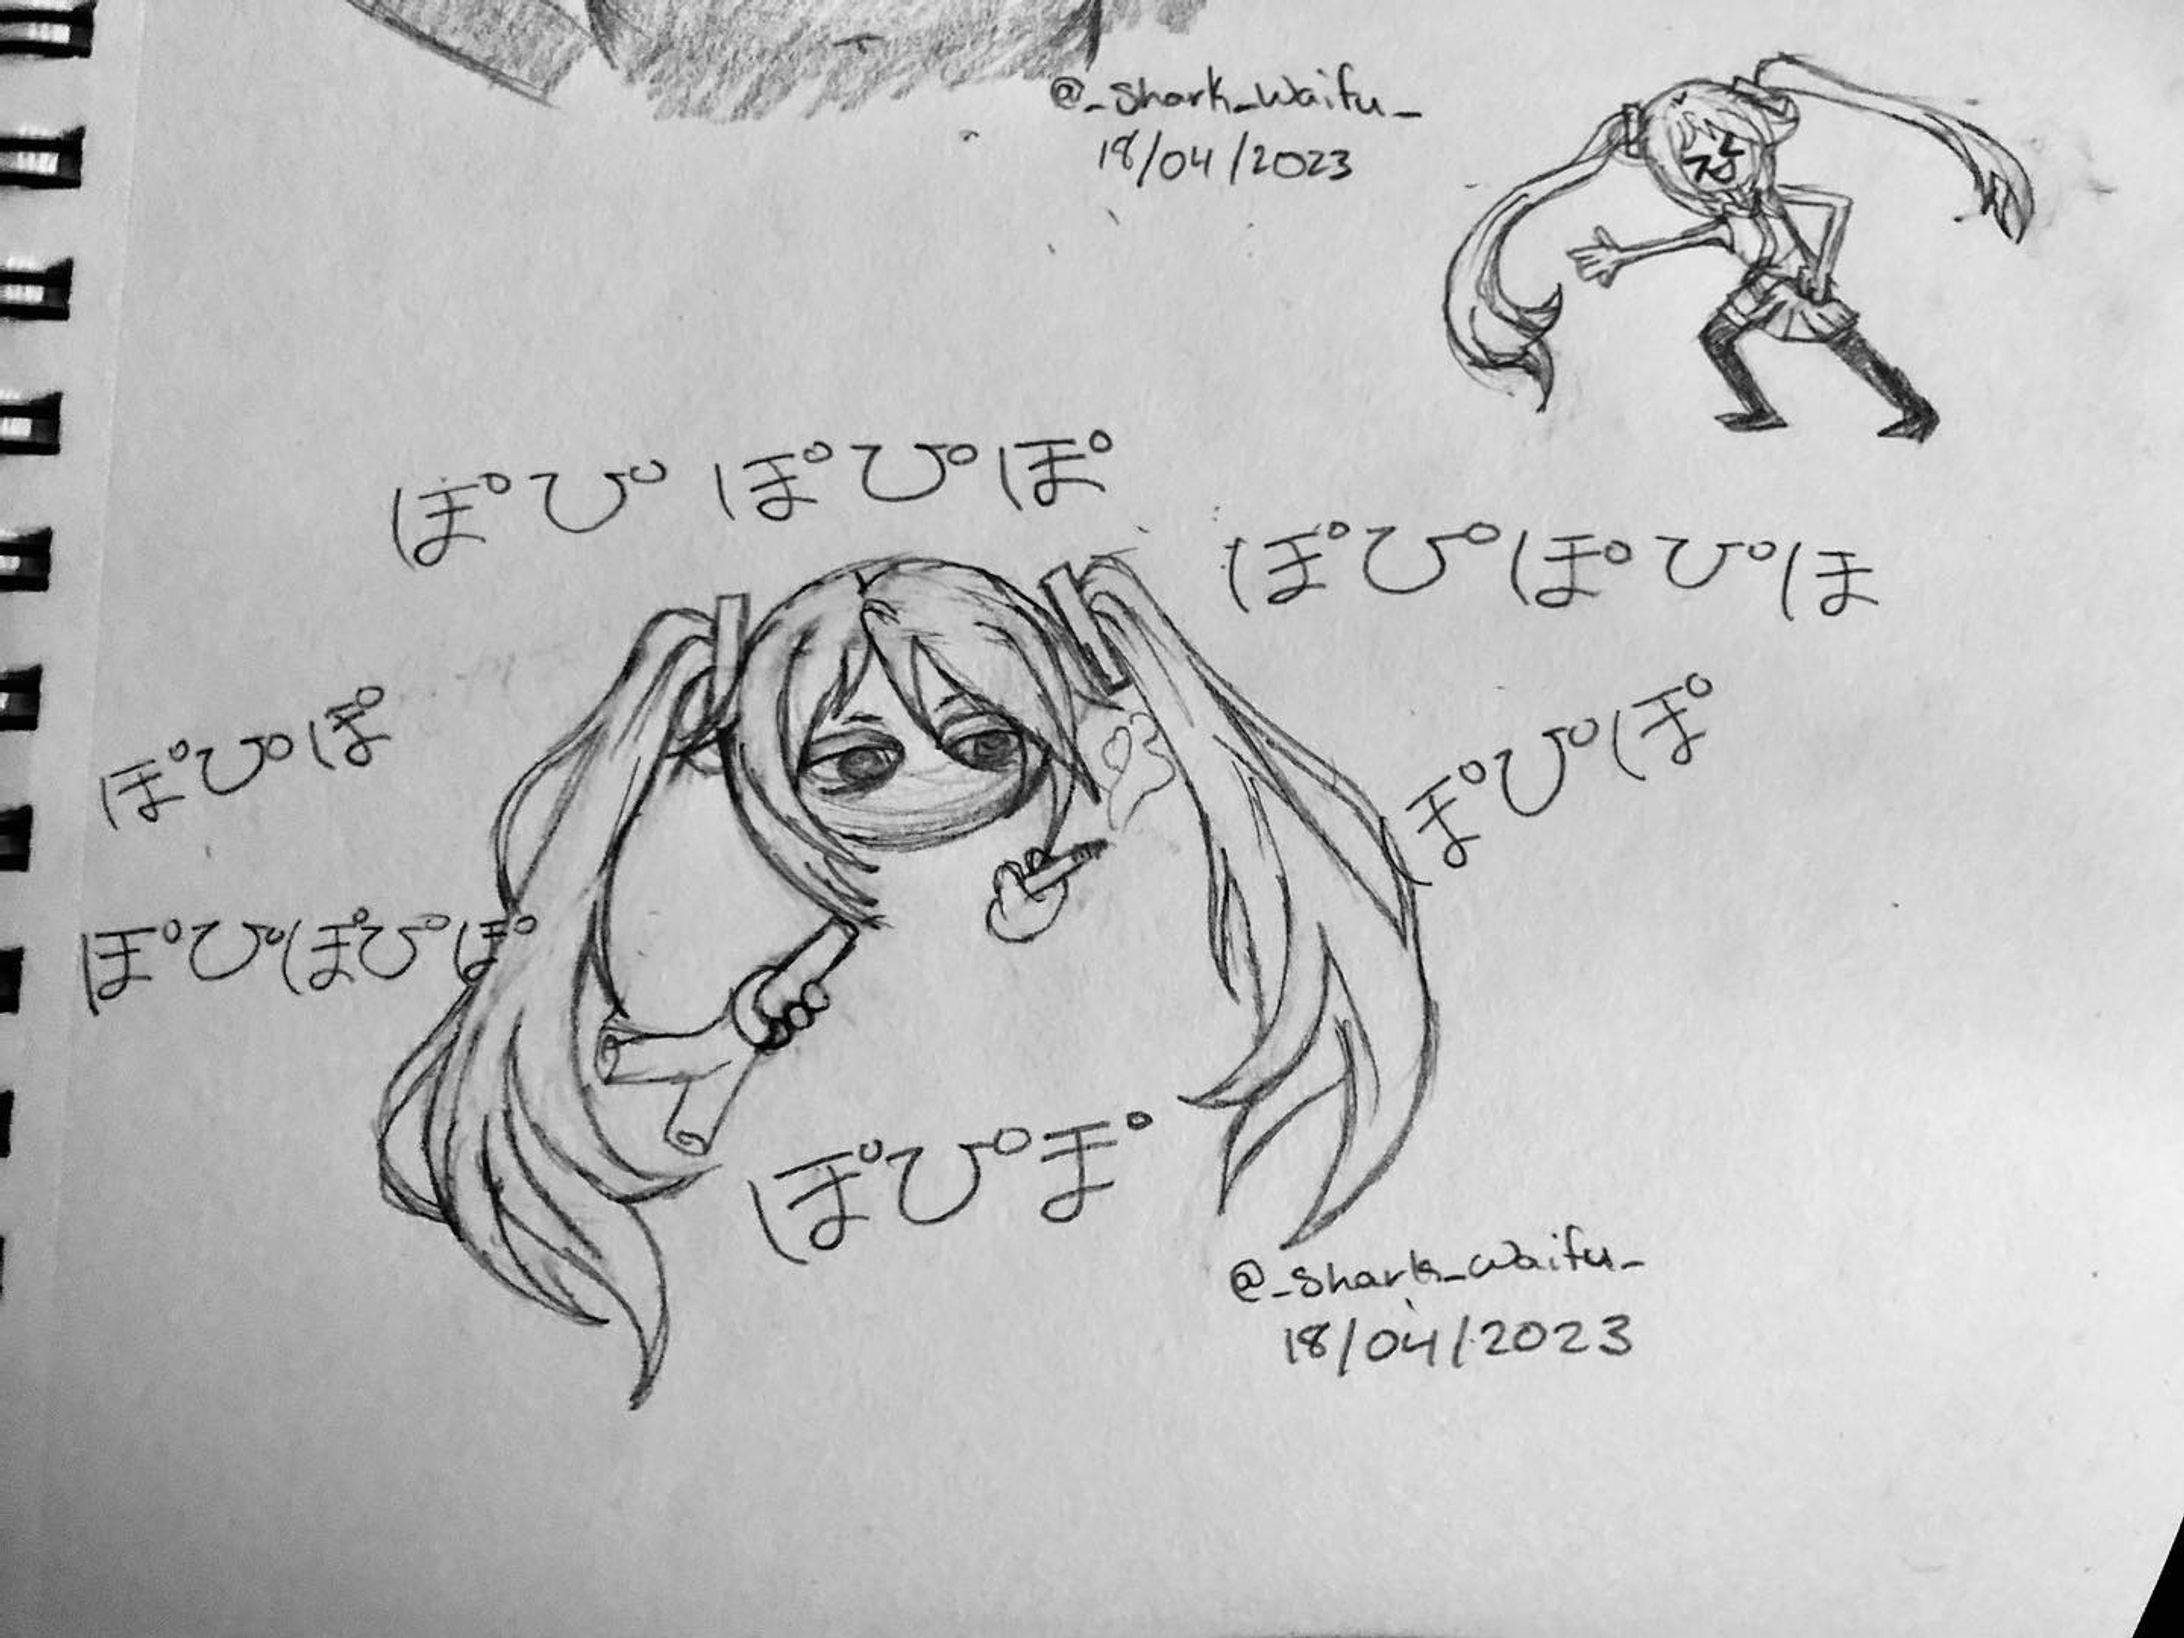 @_shark_waifu_
18/04/2023
ぽぴぽぴぽ
ぽぴぽぴほ
ぽぴぽ
ぽぴぽ
ぽぴぽぴぽ
ぽぴぽ
@_shark_waifu_
18/04/2023